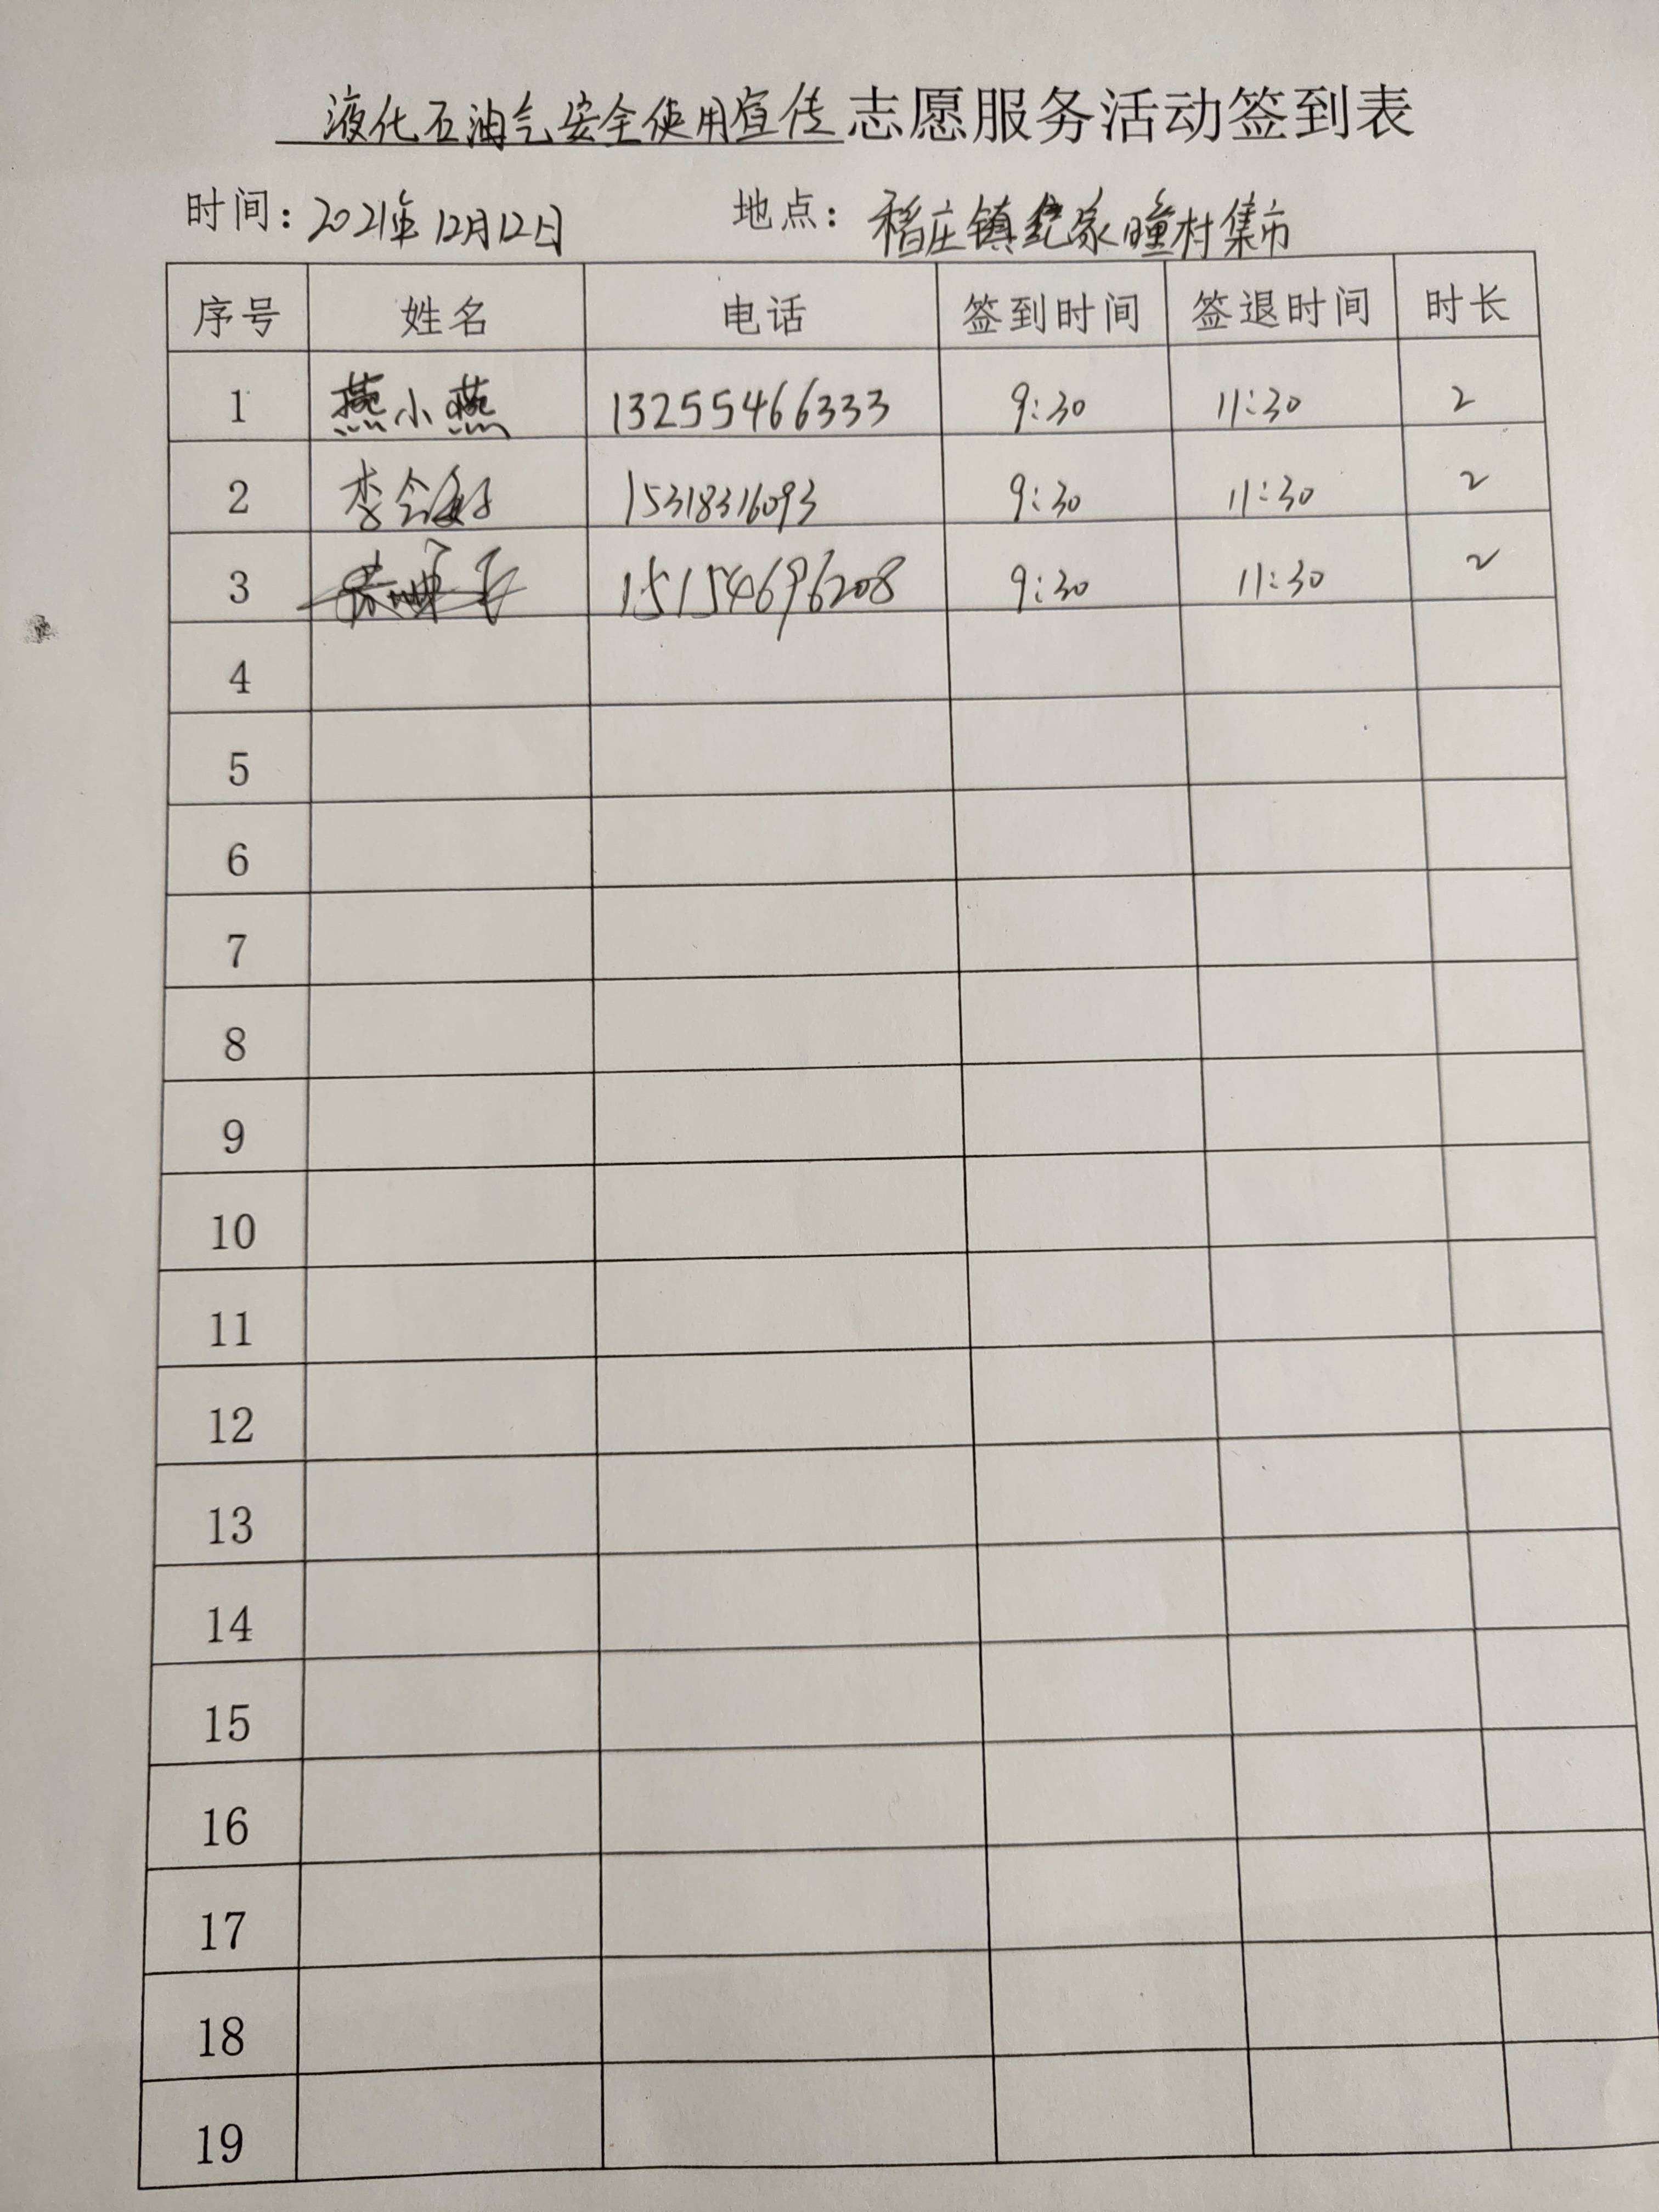 液化石油气安全使用宣传志愿服务活动签到表
时间：2021年12月12日 地点：稻庄镇纪家疃村集市
序号 姓名 电话 签到时间 签退时间 时长
1 燕小燕 13255466333 9:30 11:30 2
2 李会 15318316093 9:30 11:30 2
3 15154696208 9:30 11:30 2
4
5
6
7
8
9
10
11
12
13
14
15
16
17
18
19